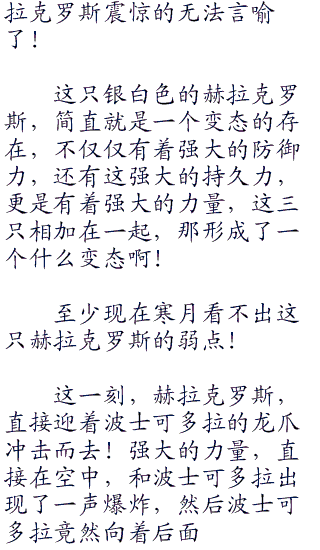 拉克罗斯震惊的无法言喻
了！
这只银白色的赫拉克罗
斯，简直就是一个变态的存
在，不仅仅有着强大的防御
力，还有这强大的持久力，
更是有着强大的力量，这三
只相加在一起，那形成了一
个什么变态啊！
至少现在寒月看不出这
只赫拉克罗斯的弱点！
这一刻，赫拉克罗斯，
直接迎着波士可多拉的龙爪
冲击而去！强大的力量，直
接在空中，和波士可多拉出
现了一声爆炸，然后波士可
多拉竟然向着后面